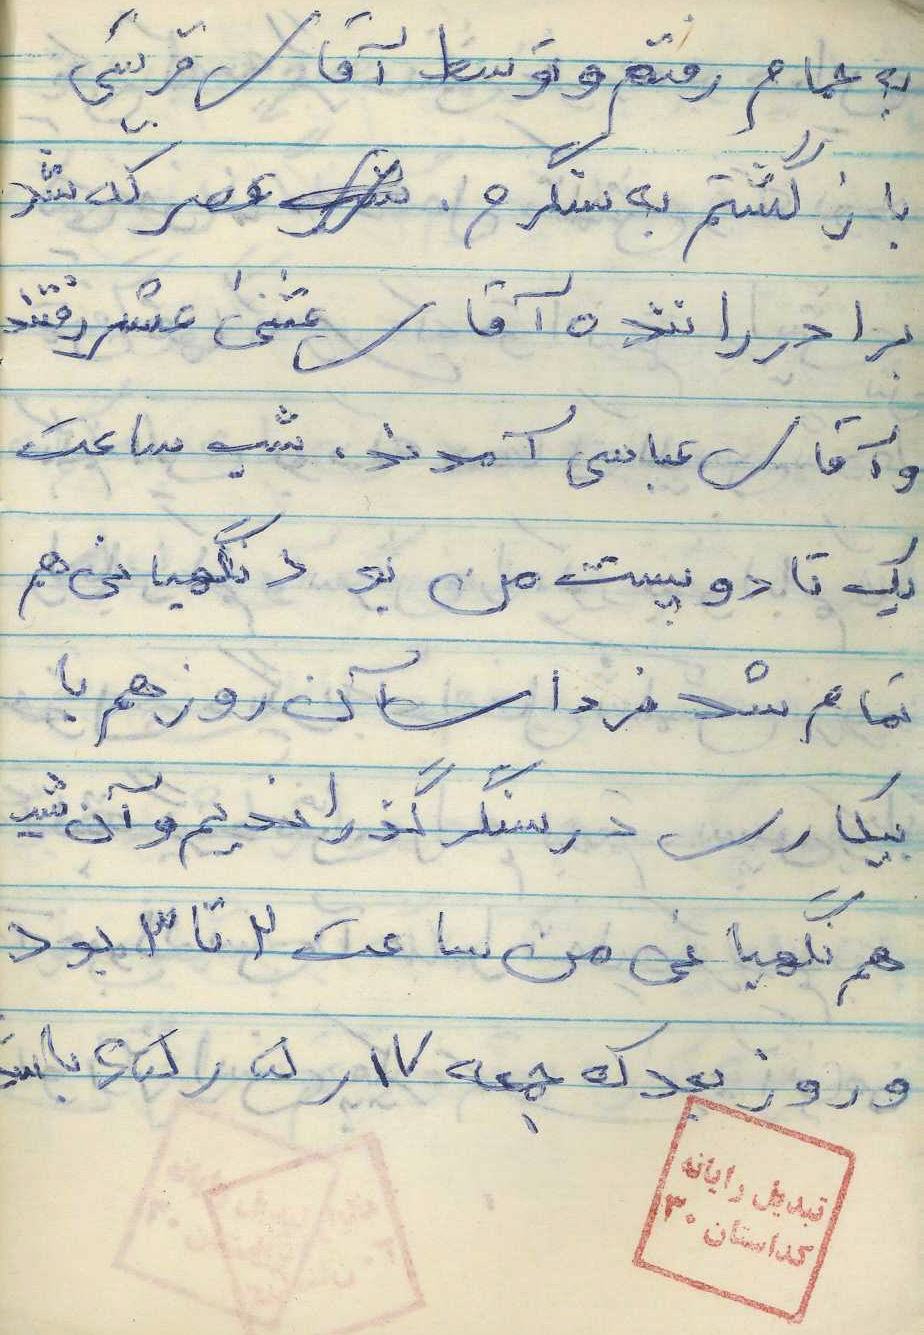 به حمام رفتم و توسط آقای قریشی
بازگشتم به سنگرم. عصر که شد
برادر راننده آقای عثنی عشر رفتند
و آقای عباسی آمدند. شب ساعت
یک تا دو پست من بود نگهبانی هم
تمام شد فردا آن روز هم با
بیکاری در سنگر گذراندیم و آن شب
هم نگهبانی من ساعت ۲ تا ۳ بود
و روز بعد که جمعه ۱۷
تبدیل رایانه
کداستان ۳۰